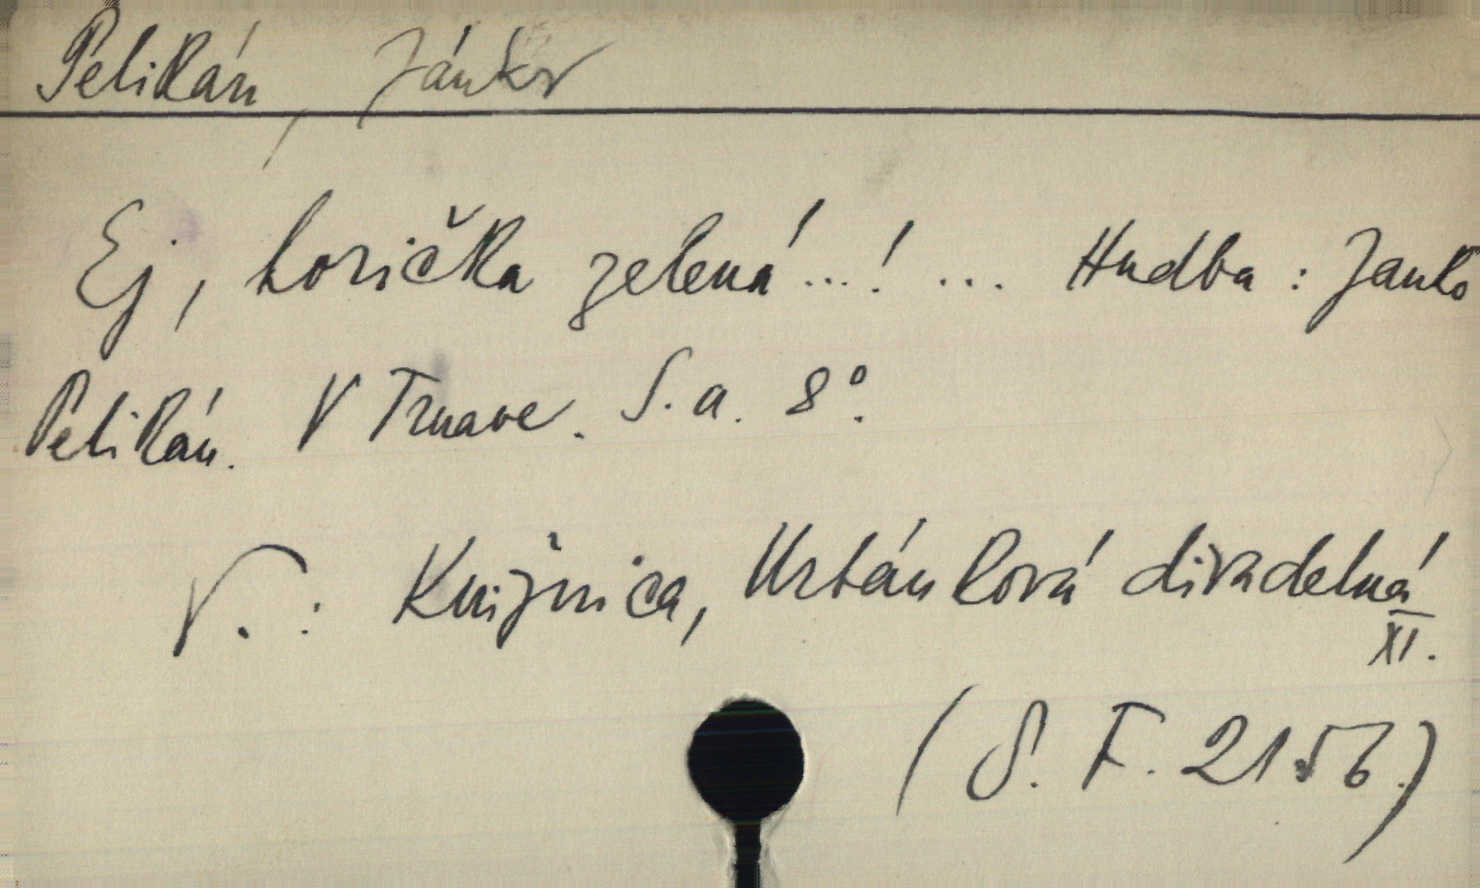 Pelikán, Jánko
Ej, horička zelená...! ... Hudba: Janko
Pelikán. V Trnave. S.a. 8°.
V.: Knižnica, Urbánková divadelná
XI.
(S. F. 2156.)